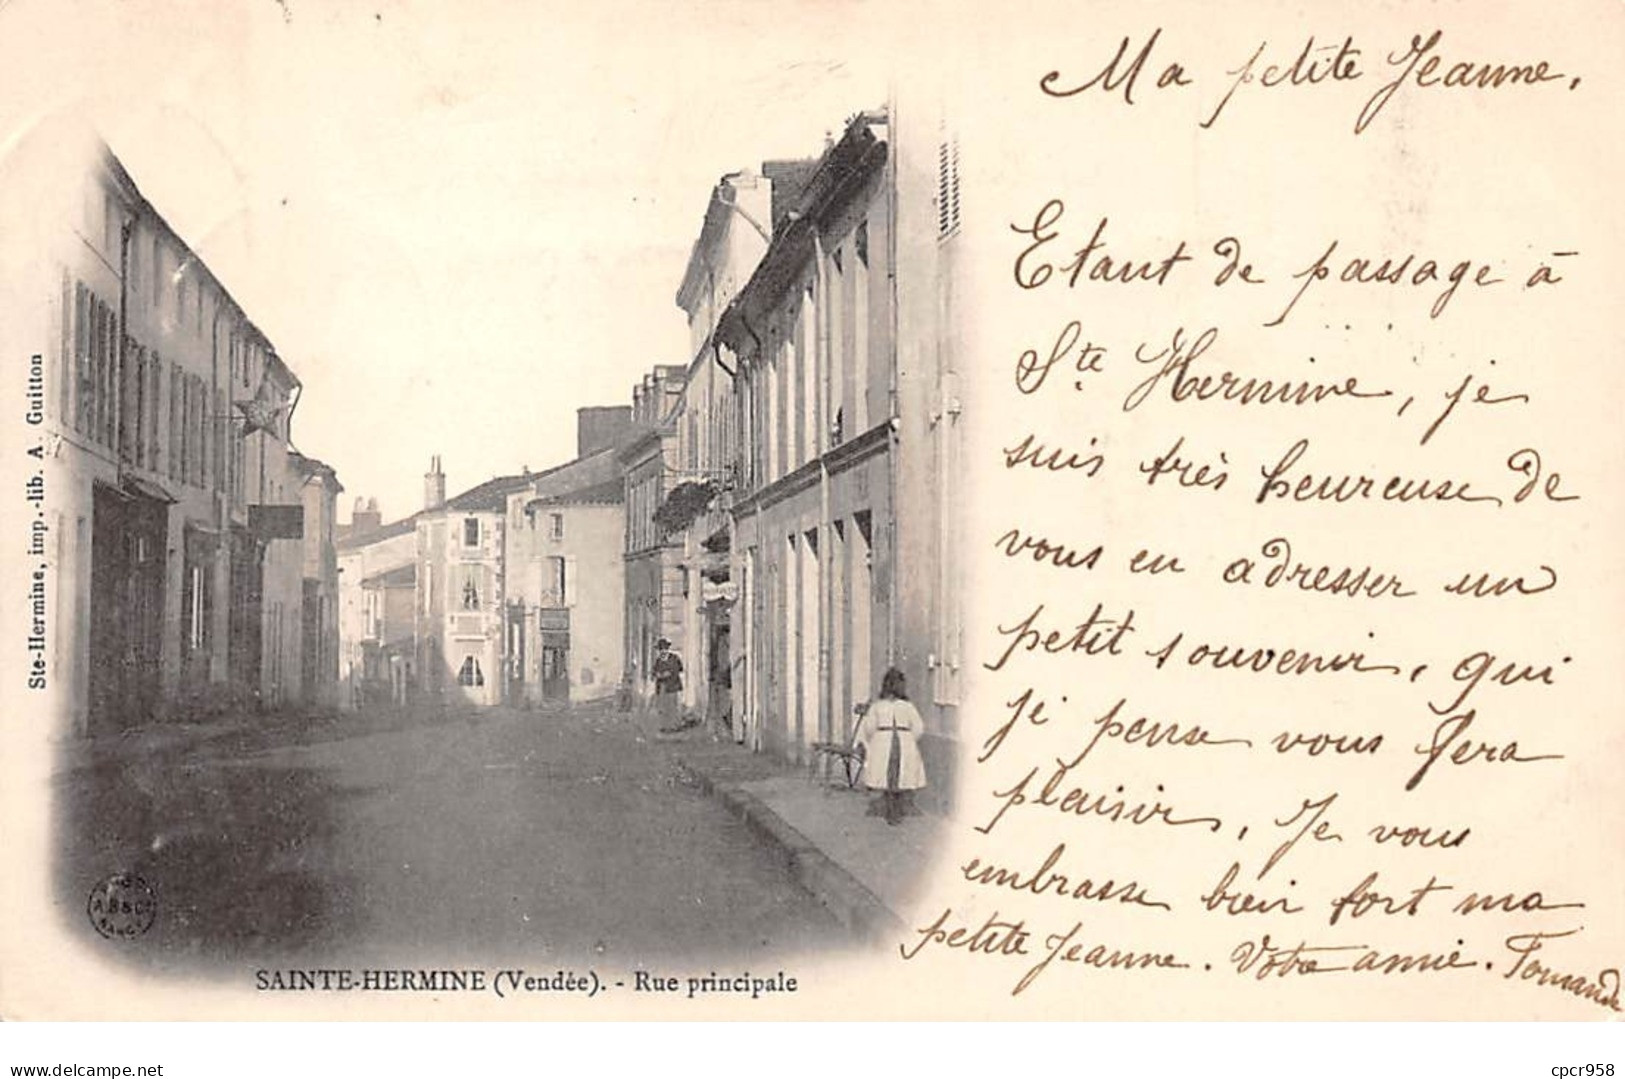 Ma petite Jeanne,
Etant de passage à
Ste Hermine, je
suis très heureuse de
vous en adresser un
petit souvenir, qui
je pense vous fera
plaisir, Je vous
embrasse bien fort ma
petite Jeanne. Votre amie.
Ste-Hermine, imp.-lib. A. Guitton
A.B&C
NANCY
SAINTE-HERMINE (Vendée). - Rue principale
delcampe.net
cpcr958